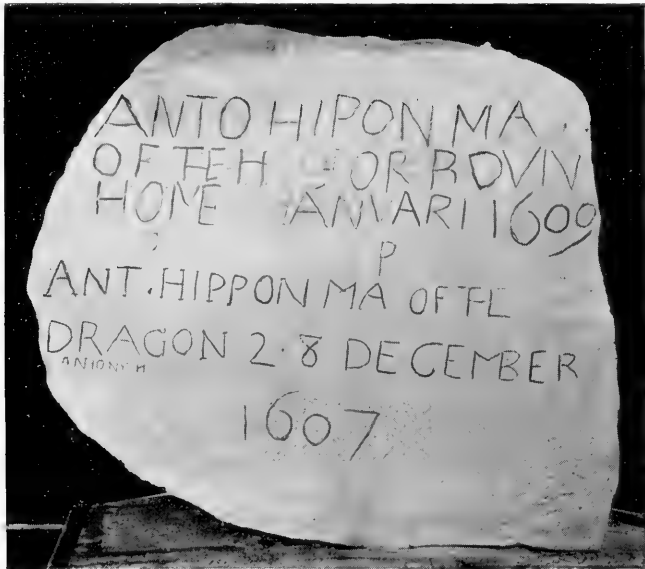 ANTO HIPON MA.
OF TEH OR BOVIN
HOME IANVARI 1609
P
ANT. HIPPON MA OF TE
DRAGON 2.8 DECEMBER
ANTONY H
1607